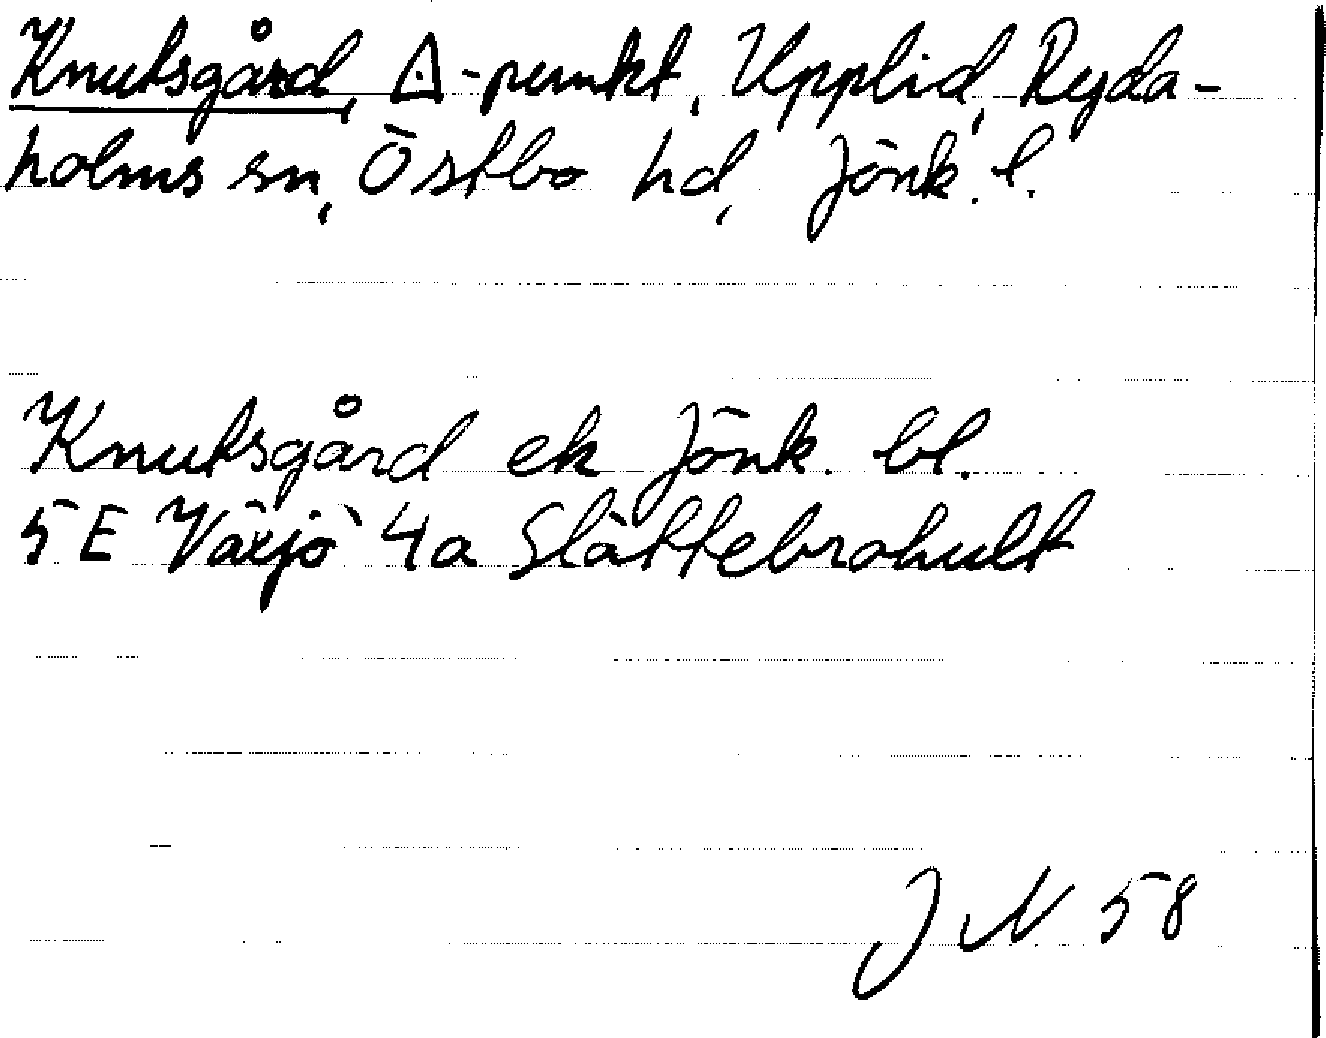 Knutsgård, △-punkt, Upplid, Ryda-
holms sn, Östbo hd, Jönk. l.
Knutsgård ek Jönk. bl.
5 E Växjö 4a Slättebrohult
J N 58